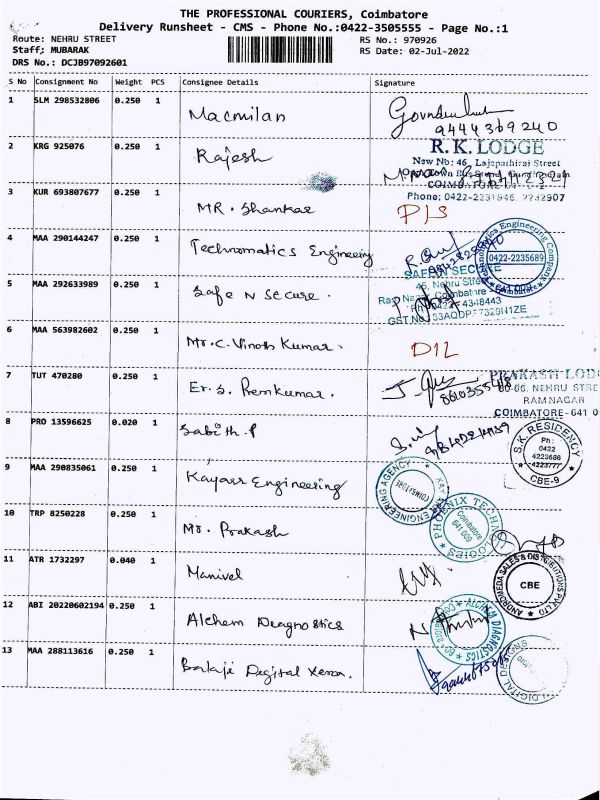 THE PROFESSIONAL COURIERS, Coimbatore
Delivery Runsheet - CMS - Phone No.:0422-3505555 - Page No.:1
Route: NEHRU STREET RS No.: 970926
Staff; MUBARAK RS Date: 02-Jul-2022
DRS No.: DCJB97092601
S No Consignment No Weight PCS Consignee Details Signature
1 SLM 298532806 0.250 1 Macmilan
9444369240
2 KRG 925076 0.250 1 Rajesh
R. K. LODGE
New No: 46, Lajapathirai Street
COIMBATORE
Phone: 0422-2231946, 2232907
3 KUR 693807677 0.250 1 MR. Shankar
4 MAA 290144247 0.250 1 Technomatics Engineering
Engineering Company
0422-2235689
SAFE N SECURE
5 MAA 292633989 0.250 1 Safe N Secure.
45, Nehru Street
Ram Nagar, Coimbatore
4348443
6 MAA 563982602 0.250 1 Mr. C. Vinoth Kumar.
7 TUT 470280 0.250 1 Er. S. Premkumar.
PRAKASH LODG
60-66, NEHRU STRE
RAM NAGAR
COIMBATORE-641 0
8 PRO 13596625 0.020 1 Sabith. P
S.K. RESIDENCY
Ph:
0422
4223666
4223777
CBE-9
9 MAA 290835061 0.250 1 Kayarr Engineering
ENGINEERING AGENCY
10 TRP 8250228 0.250 1 Mr. Prakash
PHOENIX TECHNOLOGIES
Coimbatore
641 009
11 ATR 1732297 0.040 1 Manivel
ANDROMEDA SALES & DISTRIBUTIONS PVT LTD
CBE
12 ABI 20220602194 0.250 1 Alchem Diagnostics
ALCHEM DIAGNOSTICS
13 MAA 288113616 0.250 1 Balaji Digital Xerox.
DIGITAL DESIGNS